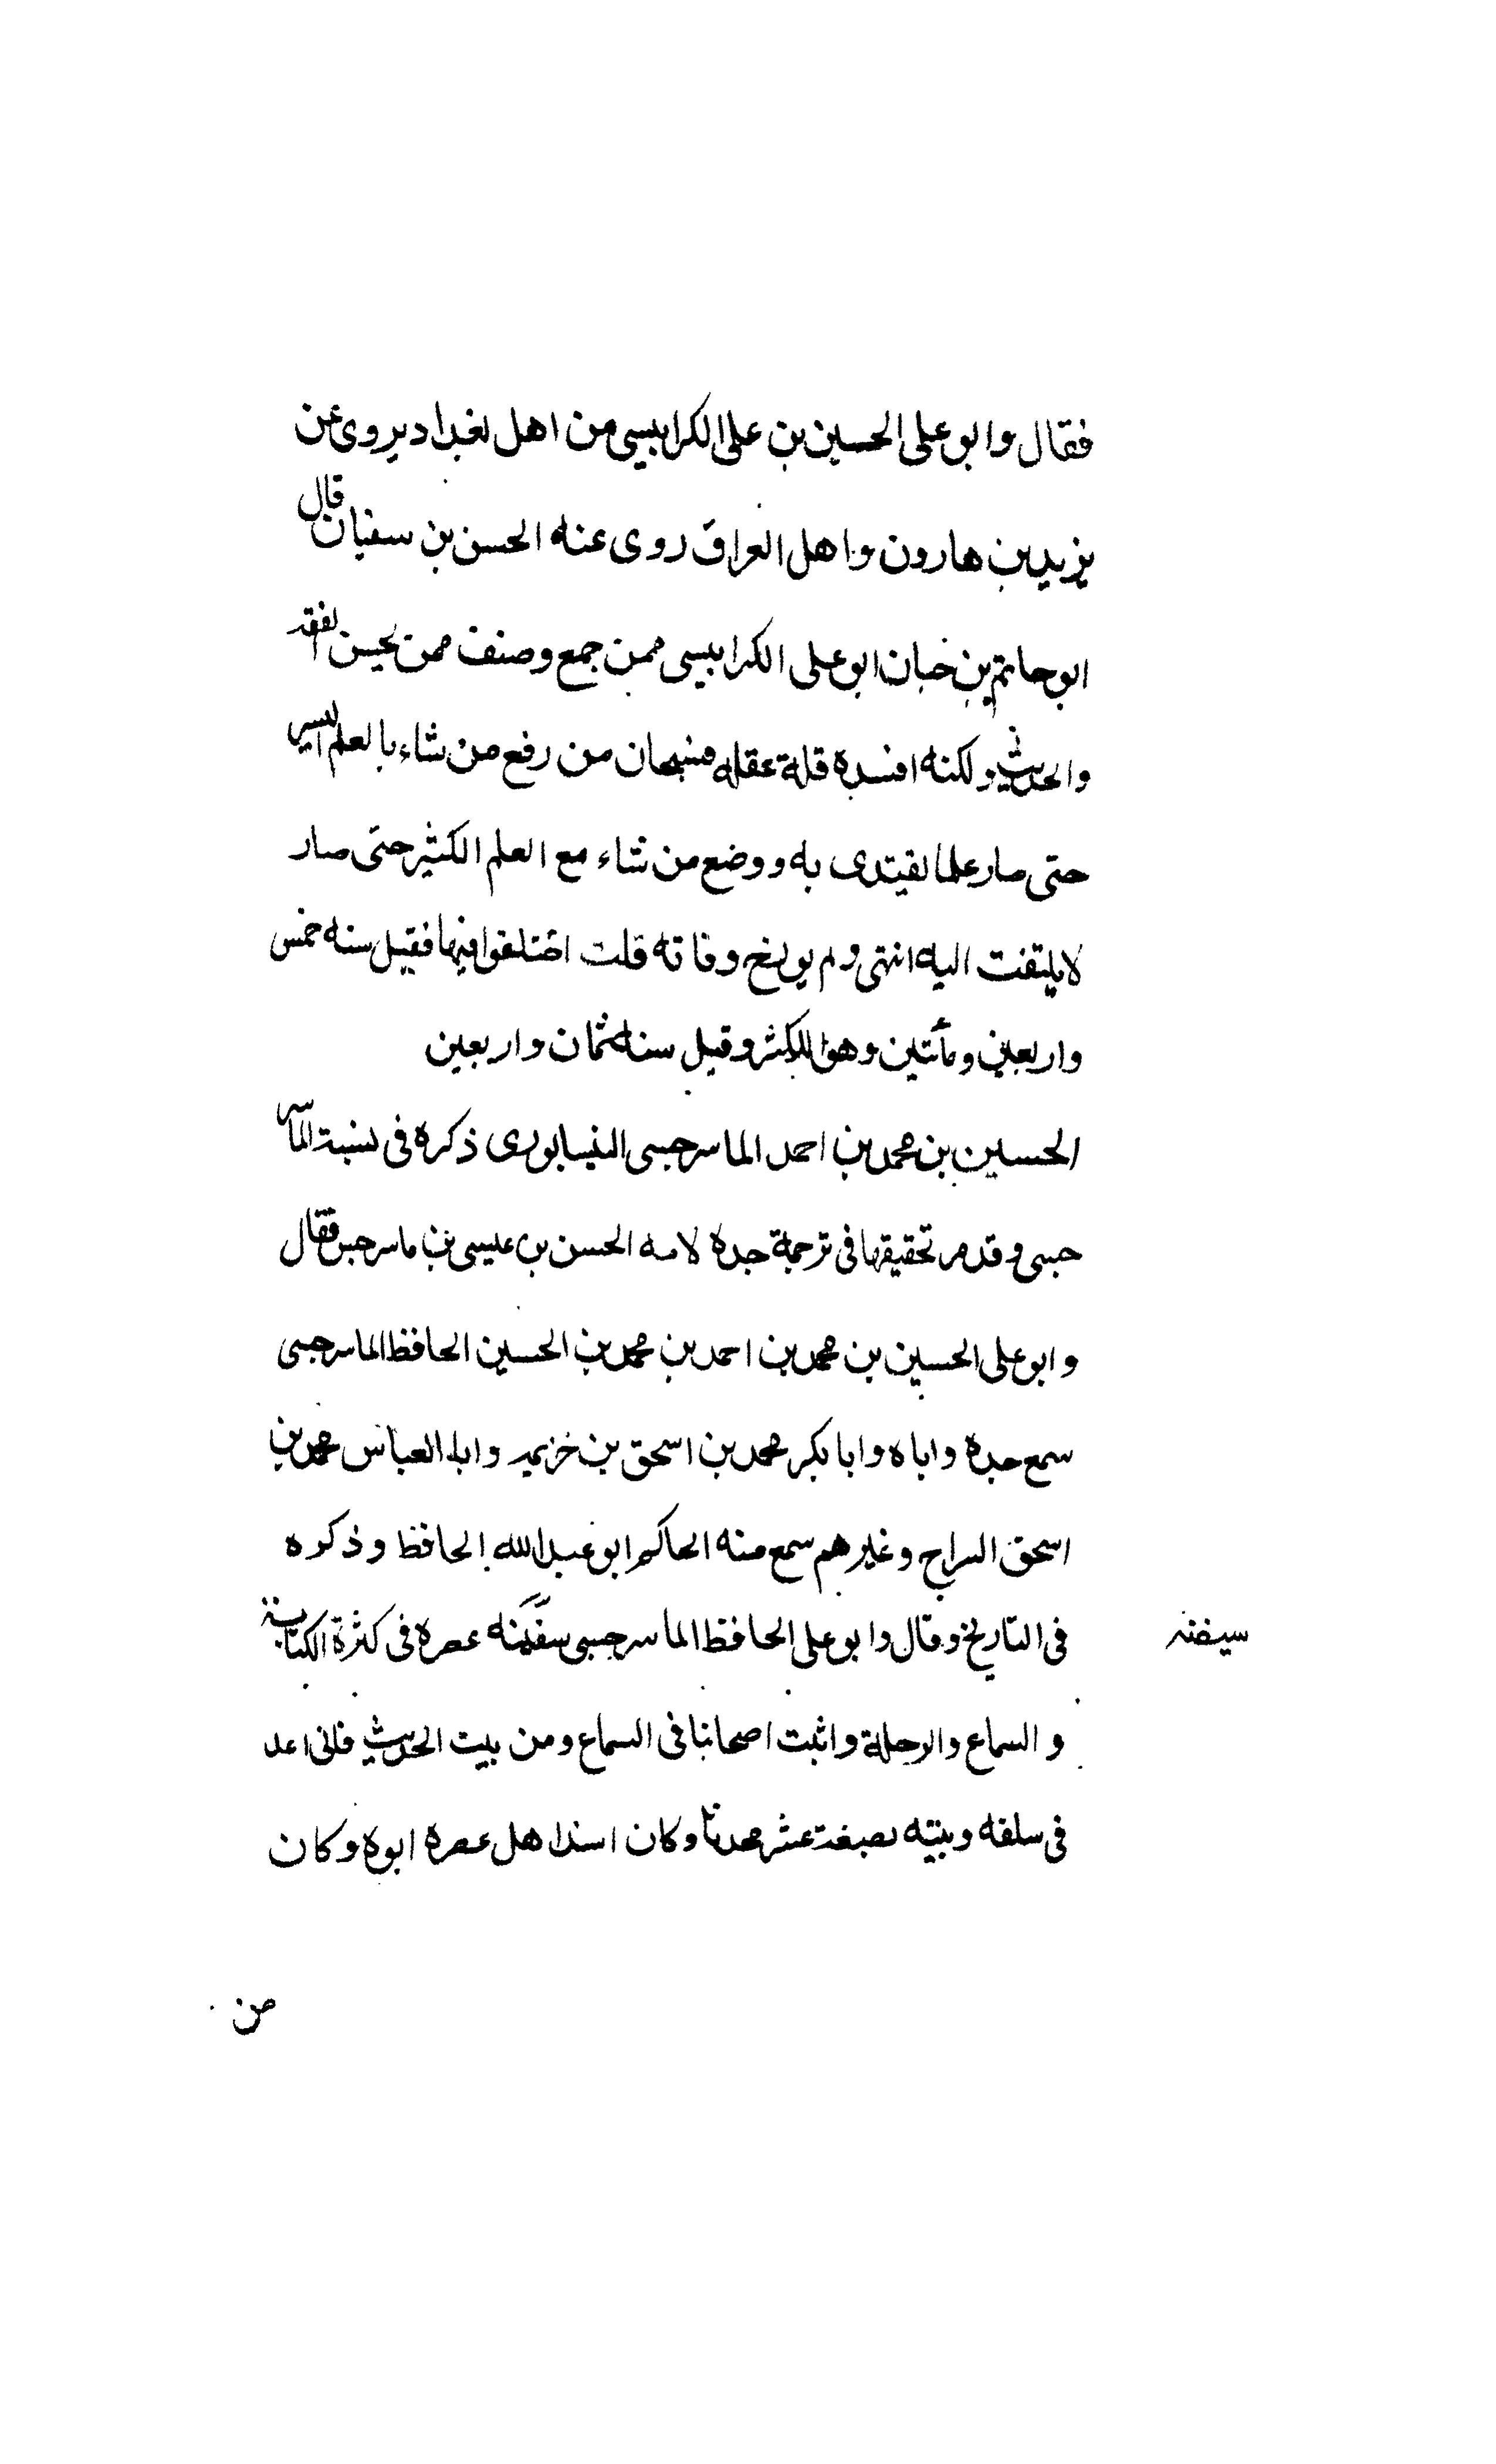 فقال وابو على الحسين بن على الكرابيسى من اهل بغداد يروى عن
يزيد بن هارون واهل العراق روى عنه الحسن بن سفيان قال
ابو حاتم بن حبان ابو على الكرابيسى ممن جمع وصنف ممن يحسن الفقه
والحديث ولكنه افسده قلة عقله فسبحان من رفع من شاء بالعلم اليسير
حتى صار علما يقتدى به ووضع من شاء مع العلم الكثير حتى صار
لا يلتفت اليه انتهى ولم يورخ وفاته قلت اختلفوا فيها فقيل سنه خمس
واربعين ومأتين وهو الاكثر وقيل سنه ثمان واربعين
الحسين بن محمد بن احمد الماسرجسى النيسابورى ذكره فى نسبة الماسر
جسى وقد مر تحقيقها فى ترجمة جده لامه الحسن بن عيسى بن ماسرجس فقال
وابو على الحسين بن محمد بن احمد بن محمد بن الحسين الحافظ الماسرجسى
سمع جده واباه وابا بكر محمد بن اسحق بن خزيمه وابا العباس محمد بن
اسحق السراج وغيرهم سمع منه الحاكم ابو عبد الله الحافظ وذكره
فى التاريخ وقال وابو على الحافظ الماسرجسى سفينه عصره فى كثرة الكتابة
سيفنه
و السماع والرحلة واثبت اصحابنا فى السماع ومن بيت الحديث فانى اعد
فى سلفه وبيته بضعة عشر محدثا وكان اسند اهل عصره ابوه وكان
من